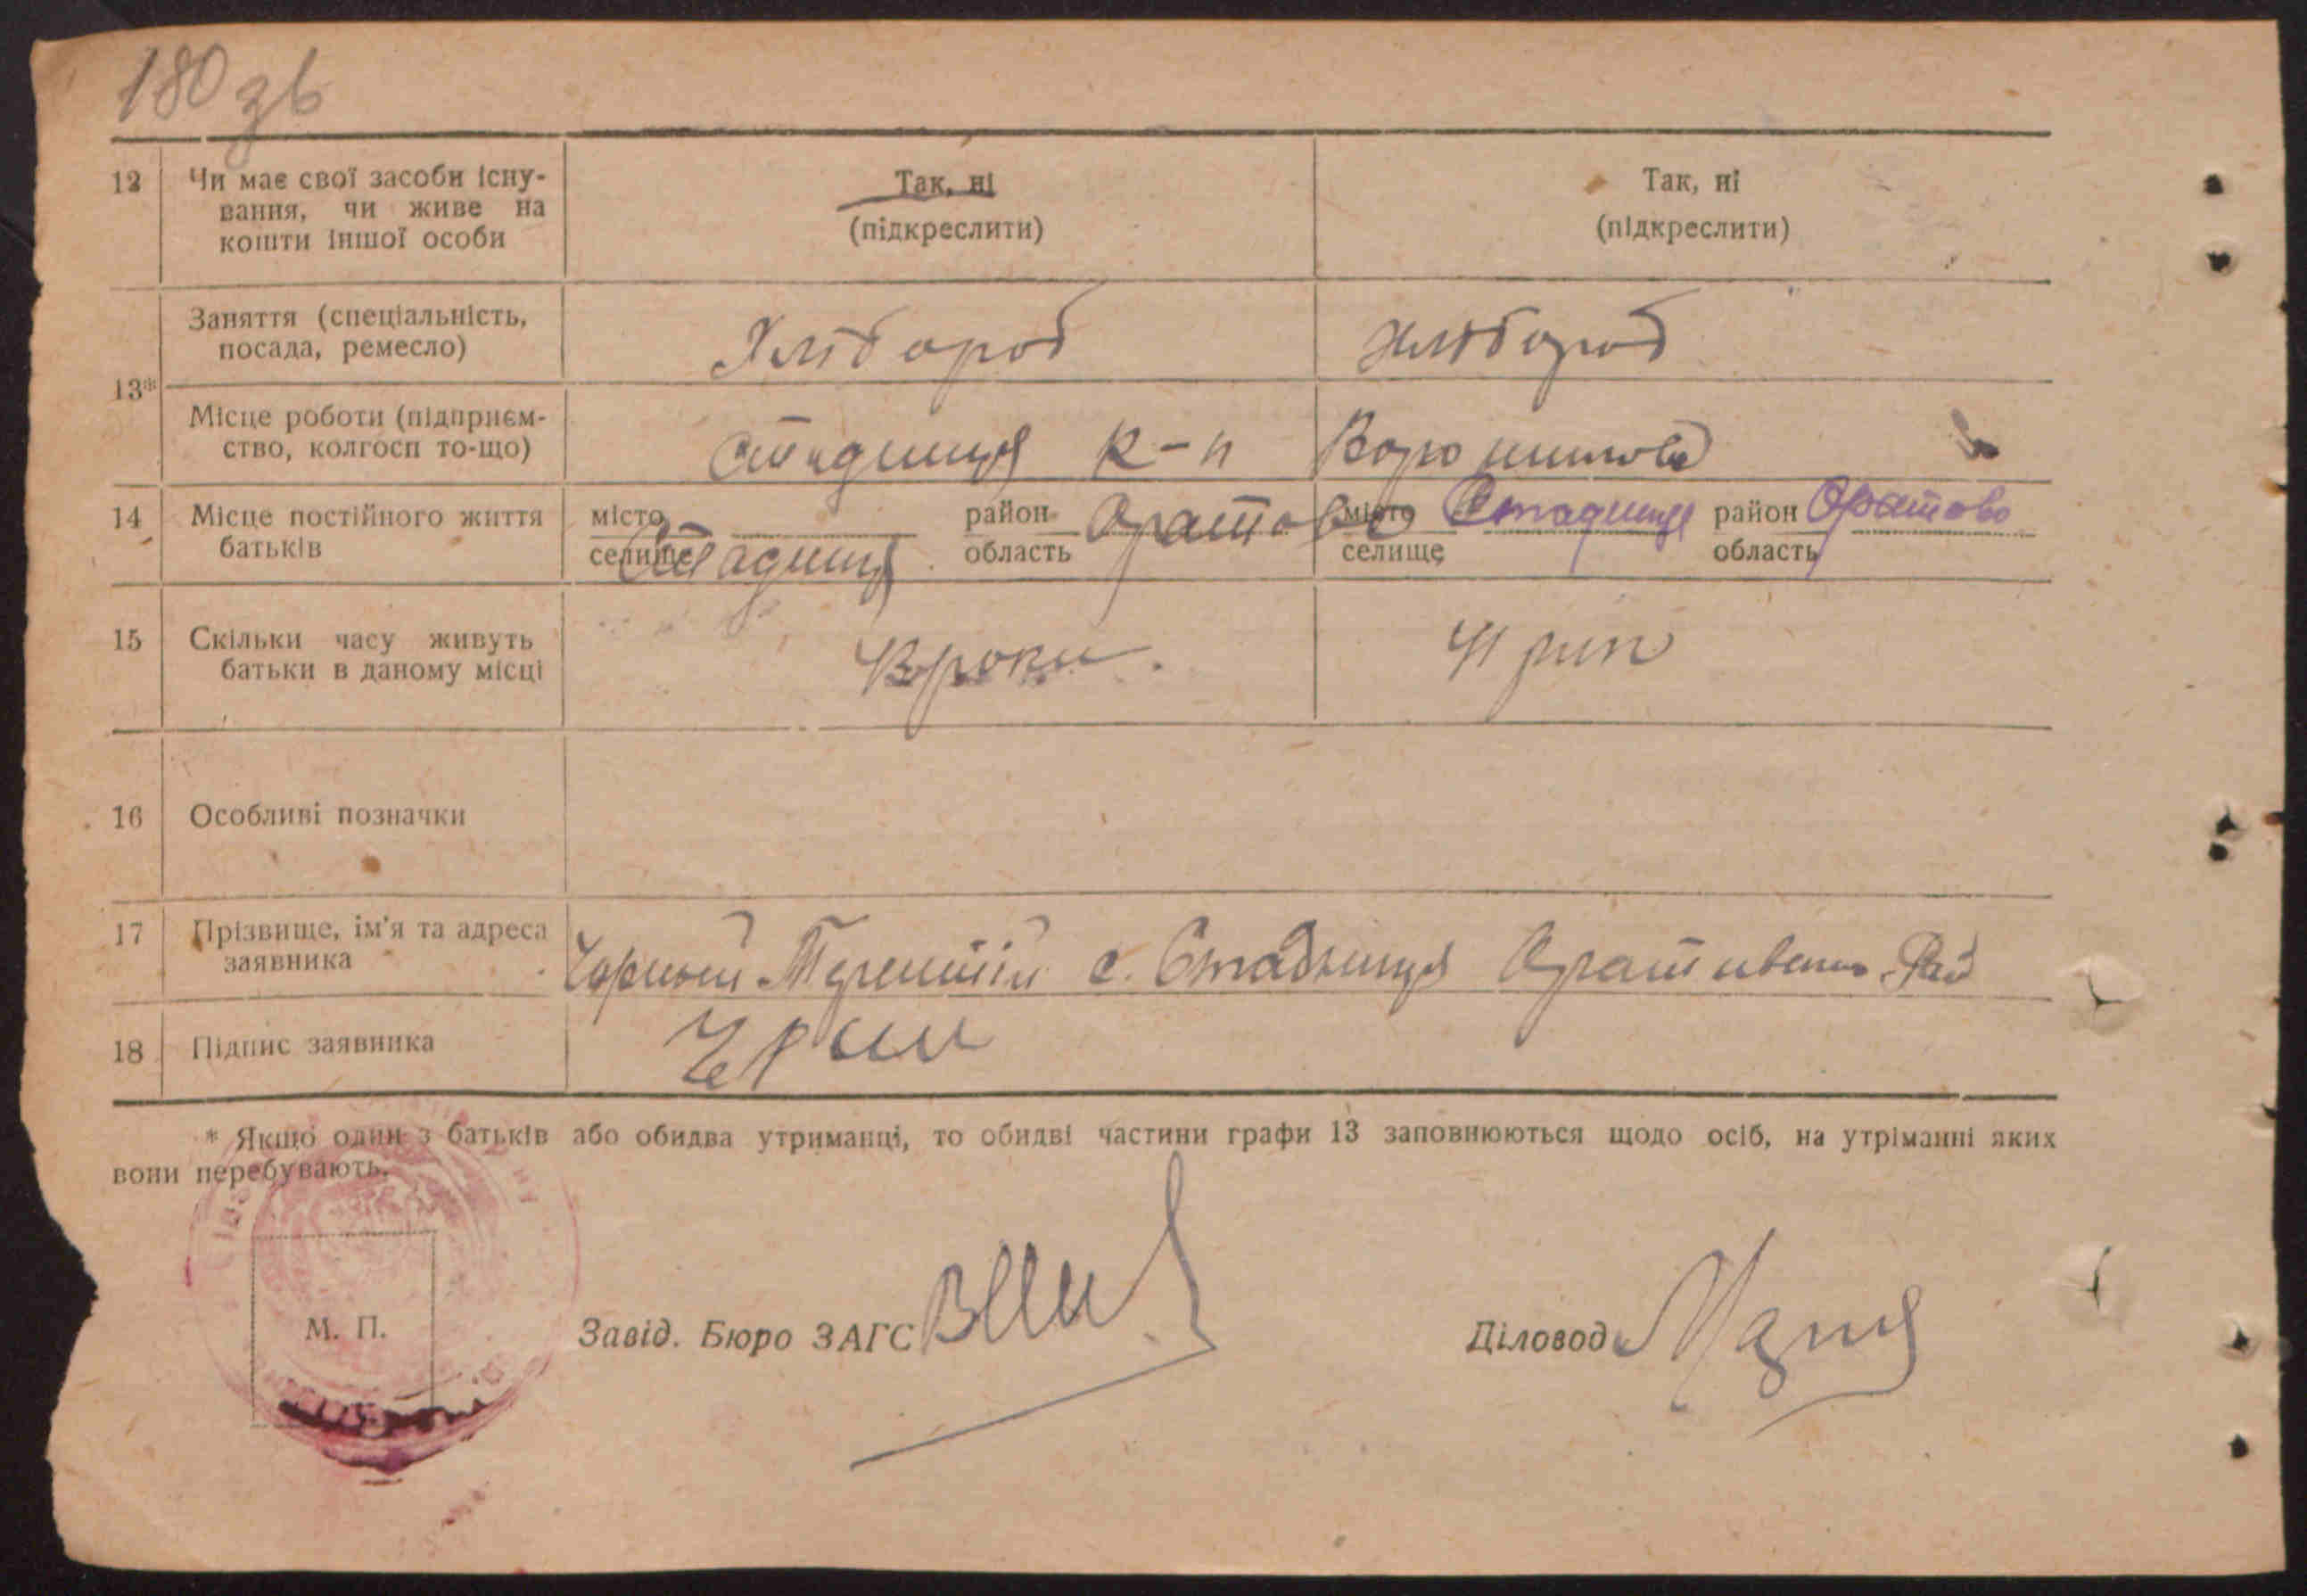 180 зв
12 Чи має свої засоби існу-
вання, чи живе на
кошти іншої особи
Так, ні
(підкреслити)
Так, ні
(підкреслити)
13*
Заняття (спеціальність,
посада, ремесло)
Хлібороб
Хлібороб
Місце роботи (підприєм-
ство, колгосп то-що)
Стадниця к-п Ворошилова
14 Місце постійного життя
батьків
місто
селище Стадниця
район Оратово
область
місто Стадниця
селище
район Оратово
область
15 Скільки часу живуть
батьки в даному місці
43 роки.
41 рік
16 Особливі позначки
17 Прізвище, ім'я та адреса
заявника
Чорний Терентій с. Стадниця Оративськ. Рай
18 Підпис заявника
* Якщо один з батьків або обидва утриманці, то обидві частини графи 13 заповнюються щодо осіб, на утріманні яких
вони перебувають.
М. П.
Завід. Бюро ЗАГС
Діловод